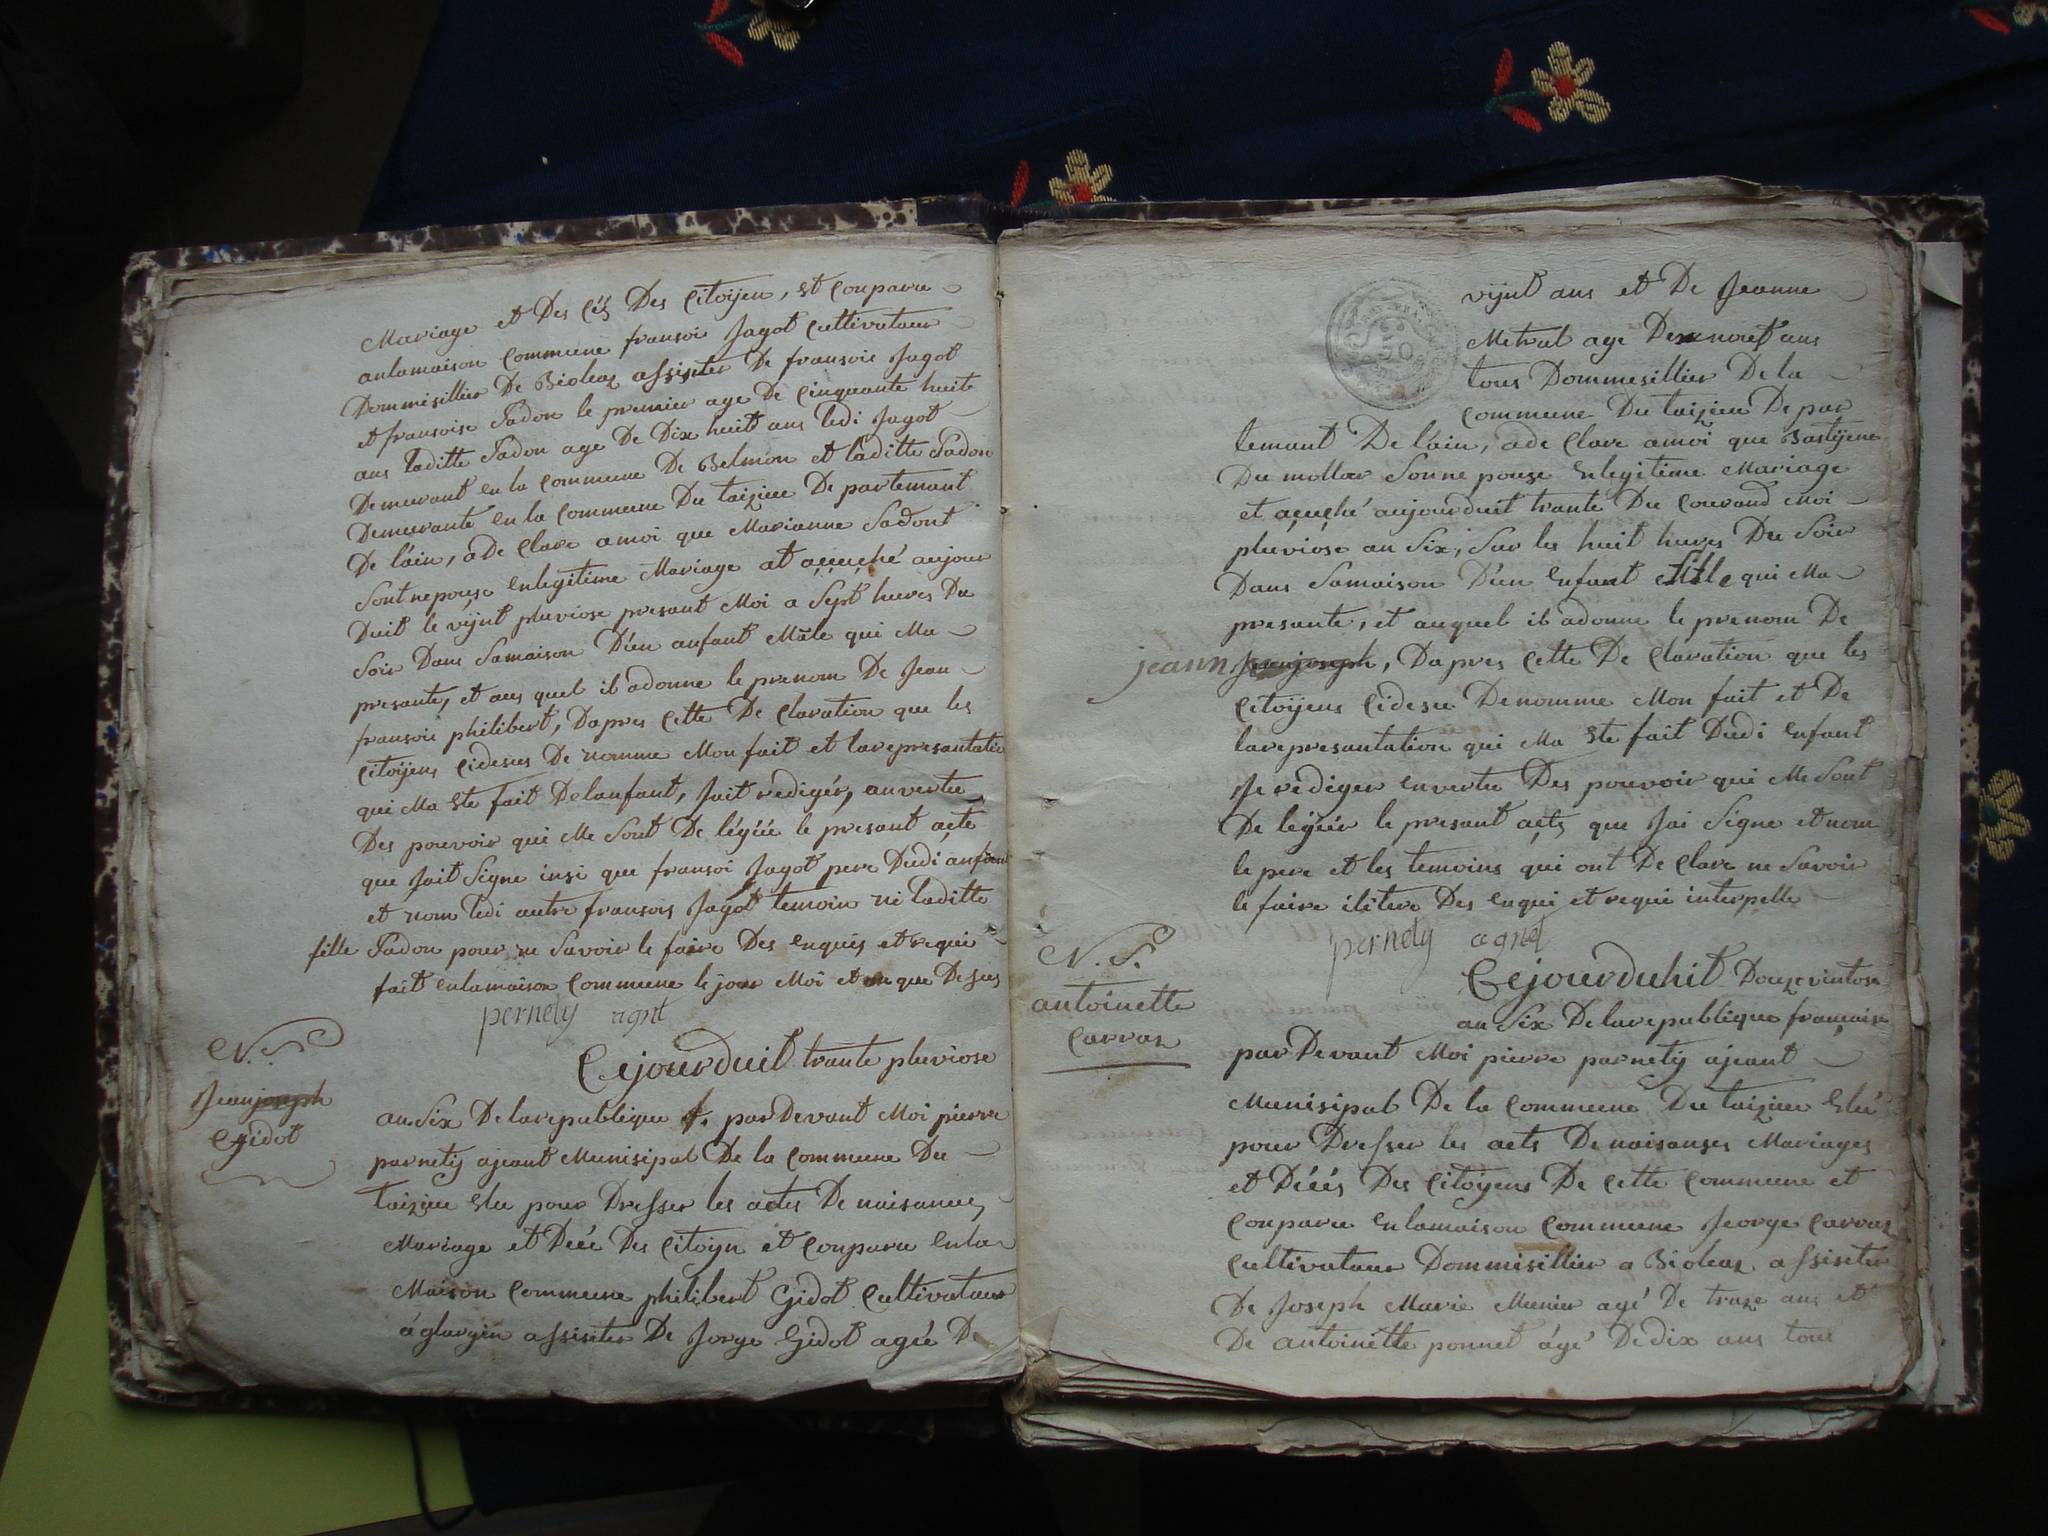 Mariage et Des Céz Des Citoijen, et Conparu
anlamaison Commune fransoi Jagot Cultivateur
Dommisillier De Bioleaz assister De fransoie Jagot
et fransoise Fadon le premier age De Cinquante huit
ans laditte Fadon age De Dix huit ans ledi Jagot
Demeurant en la Commune De Belmon et laditte Fadon
Demeurante en la Commune Du taizieu Departemant
De láin, aDe Clare amoi que Marianne Fadont
Sont nepouse enlegitime Mariage at acuché aujour
Duit le vijnt pluviose presant Moi a Sept heures Du
Soir Dans Samaison Dún anfant Mâle qui Ma
presante, et auquel il adonne le prenom De Jean
fransoie philibert, Dapres Cette De Claration que les
Citoijens Cidesus De nomme Mon fait et larepresantatio
qui Ma ete fait Delanfant, Jait redigér, anvertu
Des pouvoir qui Me Sont De légúé le presant acte
que Jait Signe insi que fransoi Jagot pere Dudi anfant
et nom ledi autre fransois Jagot temoin ni laditte
fille Fadon pour ne Savoir le faire Des enquis et requi
fait enlamaison Commune le jour Moi et an que Desus
pernety agnt
N.
Jeanjoseph
Gidot
Cejourduit trante pluviose
an Six Delarepublique f. parDevant Moi pierre
parnetij ajeant Munisipal De la Commune Du
taizieu elu pour Dresser les actes De naisance,
Mariage et Décé Des Citoijn et Conparu enla
Maison Commune philibert Gidot Cultivateur
áglargin assister De Jorge Gidot agée D
vijnt ans et De Jeanne
Metral age Dexnouef ans
tous Dommesillier De la
Commune Du taizieu Depar
temant De láin, ade Clare amoi que Bastijene
Du mollar Sonne pouse enlegitime Mariage
et acuché aujourduit trante Du Courand moi
pluviose an Six, Sur les huit heures Du Soir
Dans Samaison Dún enfant fille qui Ma
presante, et auquel il adonne le prenom De
jeann Jeanjoseph, Dapres Cette De Claration que les
Citoijens Cidesu Denomme Mon fait et De
larepresantation qui Ma ete fait Dudi enfant
Je rédiger envertu Des pouvoir qui Me Sont
De légúér le presant acte que Jai Signe et nom
le pere et les temoins qui ont De Clare ne Savoir
le faire Des enqui et requi interpelle
pernety agnt
N.
antoinette
Carraz
Cejourduhit Douze vintose
an Six Delarepublique francaise
parDevant Moi pierre parnetij ajeant
Munisipal De la Commune Du taizieu elu
pour Dresser les acts Denaisanses Mariages
et Décés Des Citoyens De Cette Commune et
Conparu enlamaison Commune Jeorge Carraz
Cultivateur Dommisillier a Bioleaz assister
De Joseph Marie Munier agé De traze ans et
De antoinette ponnet ágé Dedix ans tous